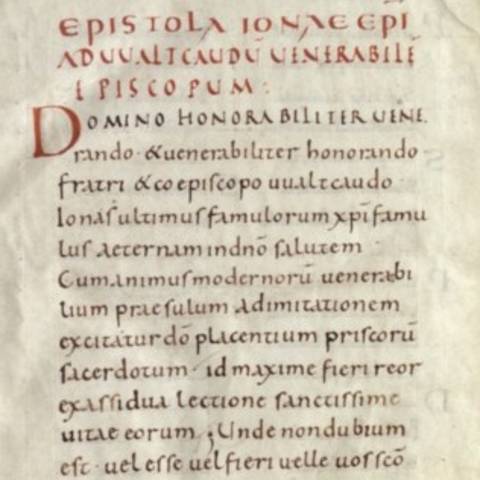 EPISTOLA IONAE EPI
AD UUALTCAUDŪ UENERABILĒ
EPISCOPUM:
DOMINO HONORABILITER UENE
rando · & uenerabiliter honorando
fratri & coepiscopo uualtcaudo
Ionas ultimus famulorum xpī famu
lus aeternam in dnō salutem
Cum animus modernorū uenerabi
lium praesulum ad imitationem
excitatur dō placentium priscorū
sacerdotum · id maxime fieri reor
ex assidua lectione sanctissime
uitae eorum ; Unde non dubium
est · uel esse uel fieri uelle uos scō